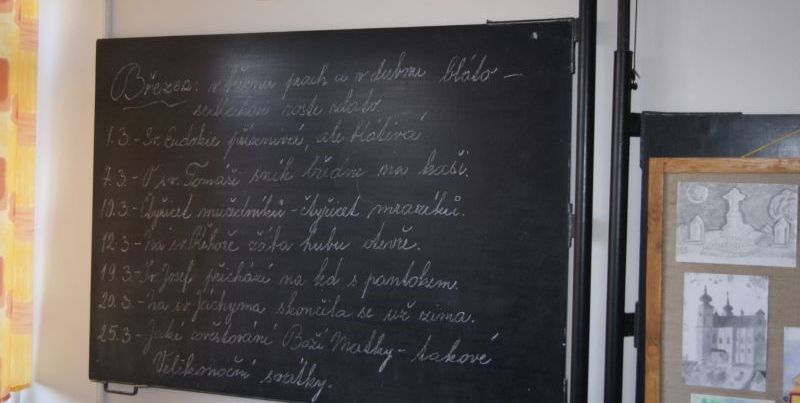 Březen: v březnu prach a v dubnu bláto -
sedlákům roste zlato
1.3. - Sv. Eudokie přeznivá, ale blátivá
7.3. - O sv. Tomáši sníh břídne na kaši.
10.3. - Čtyřicet mučedníků - čtyřicet mrazíků.
12.3 - Na sv. Řehoře žába hubu otevře.
19.3 - Sv. Josef přichází na led s pantokem.
20.3 - Na sv. Jáchyma skončila se už zima.
25.3 - Jaké zvěstování Boží Matky - takové
Velikonoční svátky.